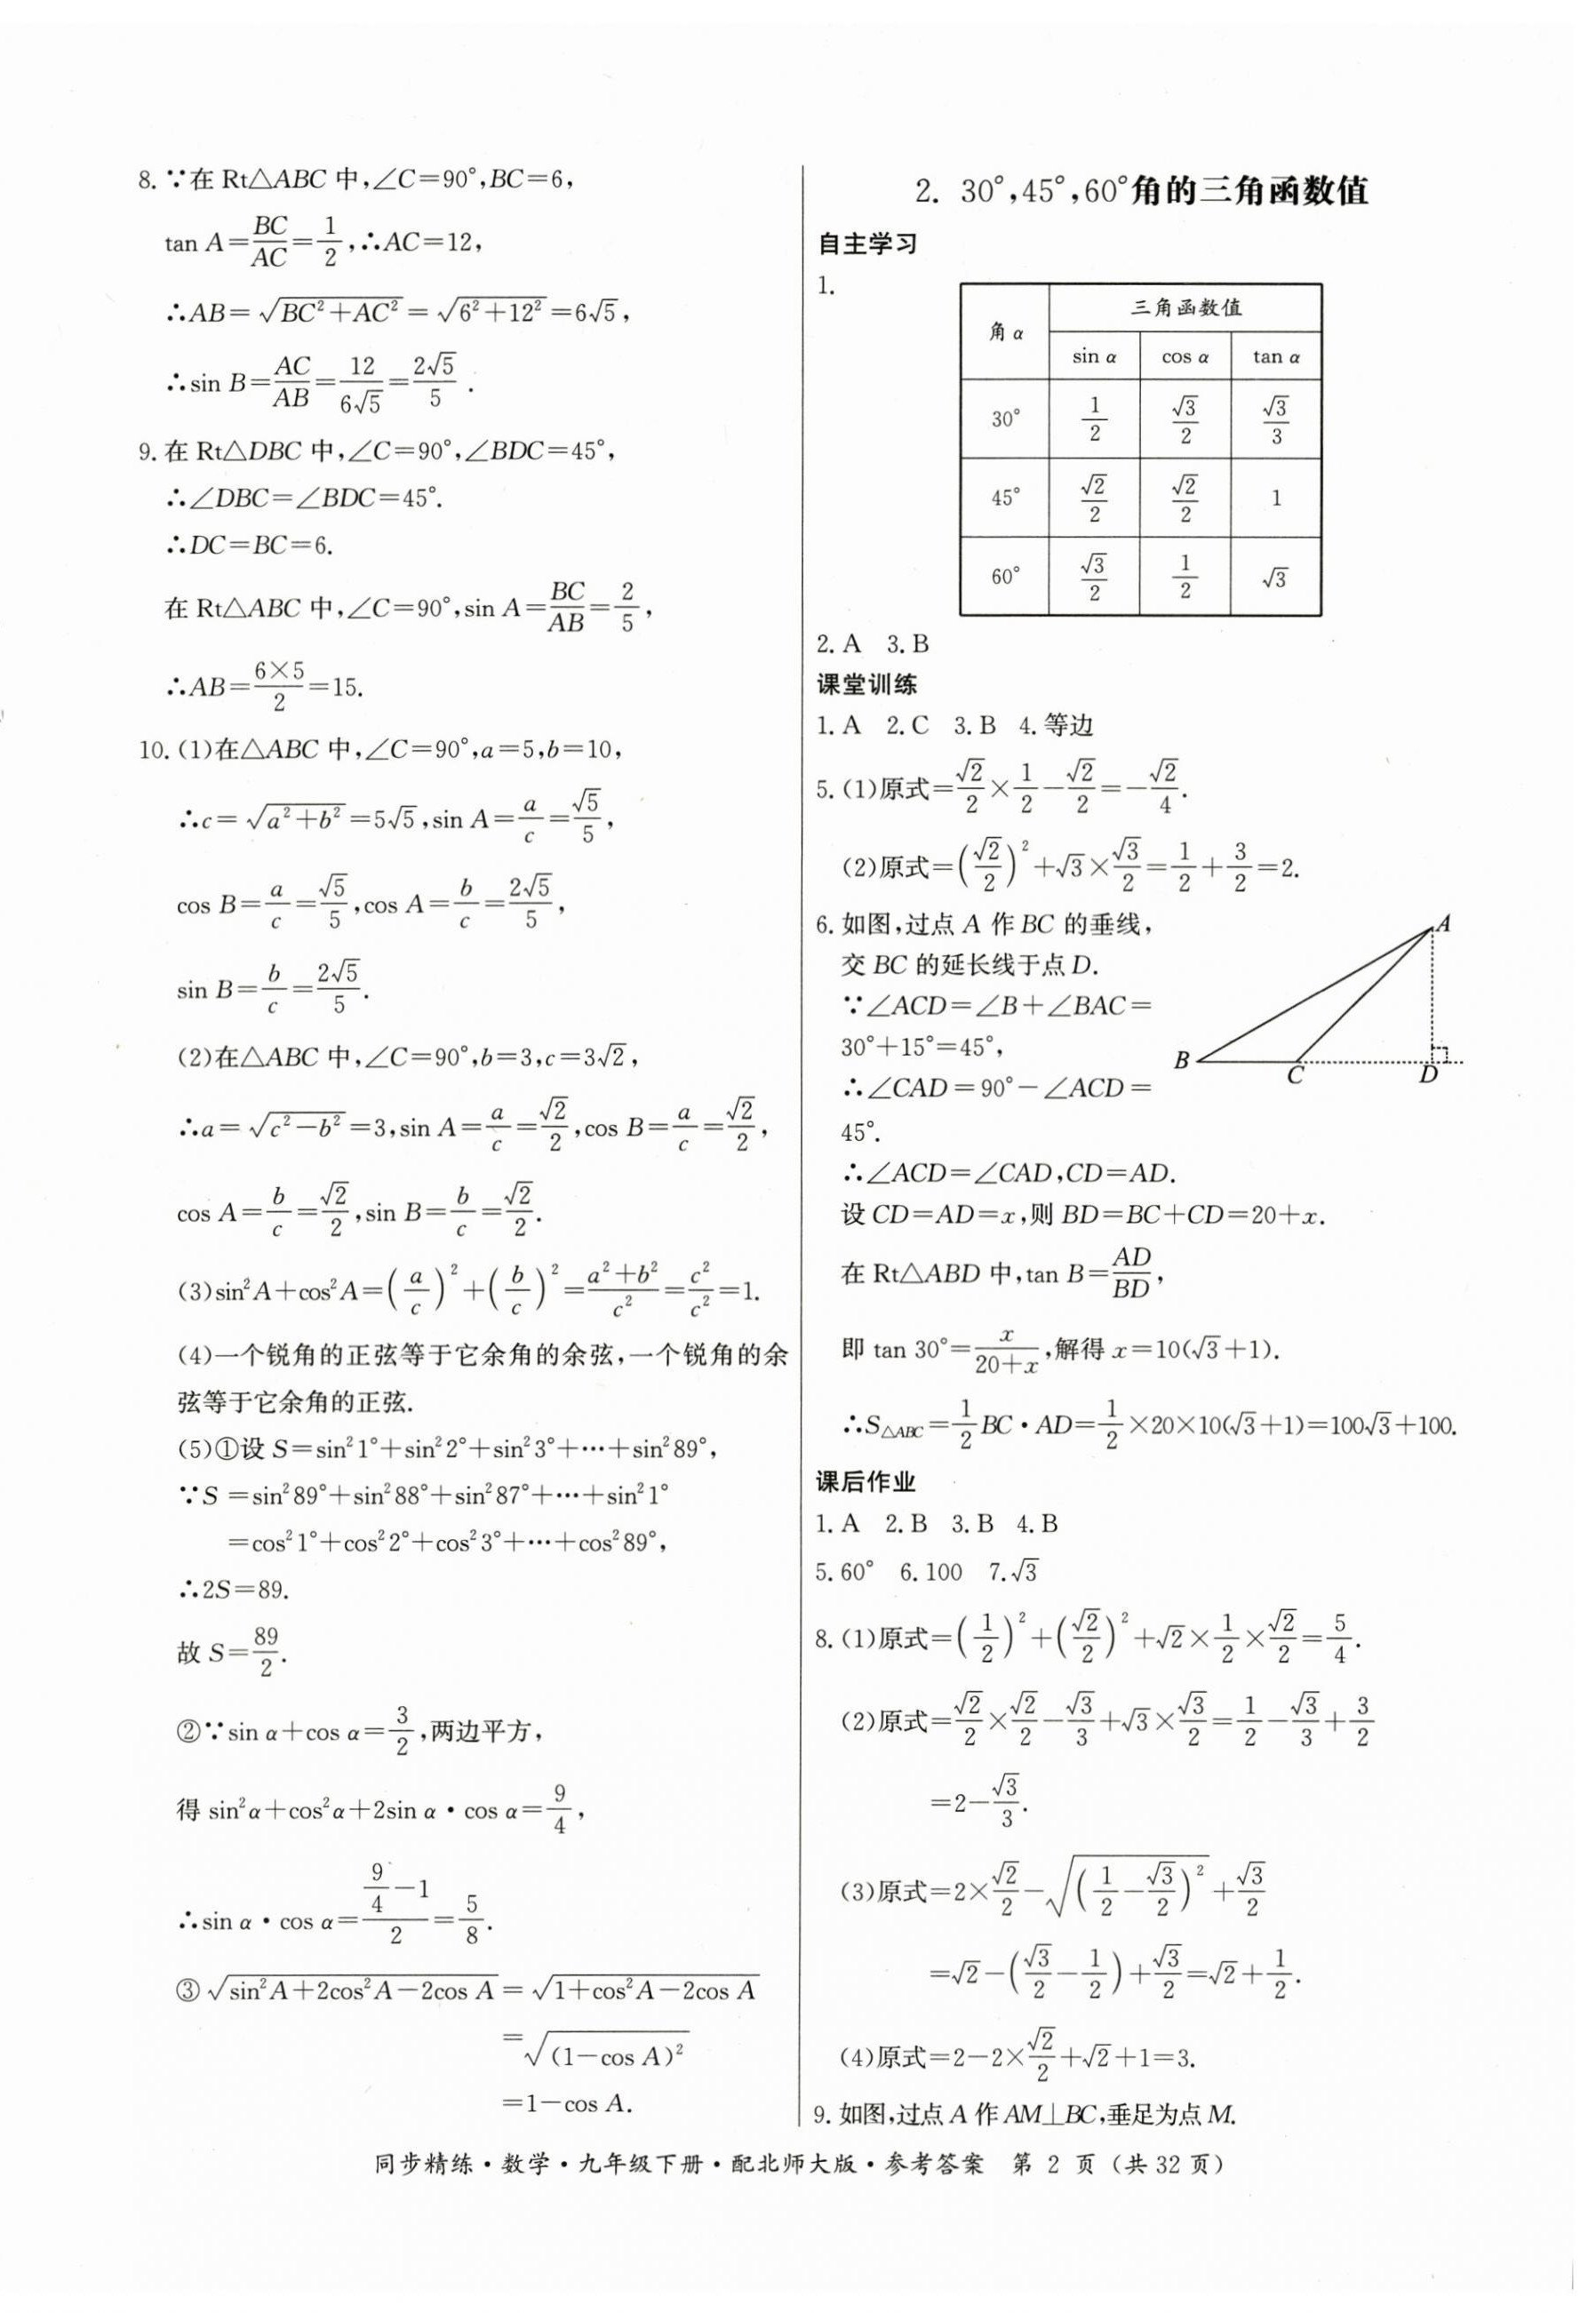 8. ∵在 Rt△ABC 中,∠C=90°,BC=6,
tan A=BC/AC=1/2,∴AC=12,
∴AB=√(BC²+AC²)=√(6²+12²)=6√5,
∴sin B=AC/AB=12/(6√5)=2√5/5.
9. 在 Rt△DBC 中,∠C=90°,∠BDC=45°,
∴∠DBC=∠BDC=45°.
∴DC=BC=6.
在 Rt△ABC 中,∠C=90°,sin A=BC/AB=2/5,
∴AB=(6×5)/2=15.
10. (1)在△ABC 中,∠C=90°,a=5,b=10,
∴c=√(a²+b²)=5√5,sin A=a/c=√5/5,
cos B=a/c=√5/5,cos A=b/c=2√5/5,
sin B=b/c=2√5/5.
(2)在△ABC 中,∠C=90°,b=3,c=3√2,
∴a=√(c²-b²)=3,sin A=a/c=√2/2,cos B=a/c=√2/2,
cos A=b/c=√2/2,sin B=b/c=√2/2.
(3)sin²A+cos²A=(a/c)²+(b/c)²=(a²+b²)/c²=c²/c²=1.
(4)一个锐角的正弦等于它余角的余弦,一个锐角的余
弦等于它余角的正弦.
(5)①设 S=sin²1°+sin²2°+sin²3°+⋯+sin²89°,
∵S =sin²89°+sin²88°+sin²87°+⋯+sin²1°
=cos²1°+cos²2°+cos²3°+⋯+cos²89°,
∴2S=89.
故 S=89/2.
②∵sin α+cos α=3/2,两边平方,
得 sin²α+cos²α+2sin α·cos α=9/4,
∴sin α·cos α=(9/4-1)/2=5/8.
③√(sin²A+2cos²A-2cos A)=√(1+cos²A-2cos A)
=√((1-cos A)²)
=1-cos A.
2. 30°,45°,60°角的三角函数值
自主学习
1.
角 α 三角函数值
sin α cos α tan α
30° 1/2 √3/2 √3/3
45° √2/2 √2/2 1
60° √3/2 1/2 √3
2. A 3. B
课堂训练
1. A 2. C 3. B 4. 等边
5. (1)原式=√2/2×1/2-√2/2=-√2/4.
(2)原式=(√2/2)²+√3×√3/2=1/2+3/2=2.
6. 如图,过点 A 作 BC 的垂线,
交 BC 的延长线于点 D.
∵∠ACD=∠B+∠BAC=
30°+15°=45°,
∴∠CAD=90°-∠ACD=
45°.
A
B
C
D
∴∠ACD=∠CAD,CD=AD.
设 CD=AD=x,则 BD=BC+CD=20+x.
在 Rt△ABD 中,tan B=AD/BD,
即 tan 30°=x/(20+x),解得 x=10(√3+1).
∴S△ABC=1/2BC·AD=1/2×20×10(√3+1)=100√3+100.
课后作业
1. A 2. B 3. B 4. B
5. 60° 6. 100 7. √3
8. (1)原式=(1/2)²+(√2/2)²+√2×1/2×√2/2=5/4.
(2)原式=√2/2×√2/2-√3/3+√3×√3/2=1/2-√3/3+3/2
=2-√3/3.
(3)原式=2×√2/2-√((1/2-√3/2)²)+√3/2
=√2-(√3/2-1/2)+√3/2=√2+1/2.
(4)原式=2-2×√2/2+√2+1=3.
9. 如图,过点 A 作 AM⊥BC,垂足为点 M.
同步精练·数学·九年级下册·配北师大版·参考答案 第 2 页 (共 32 页)